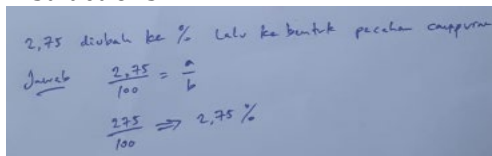 2,75 diubah ke % lalu ke bentuk pecahan campuran
Jawab 2,75/100 = a/b
275/100 ⇒ 2,75 %